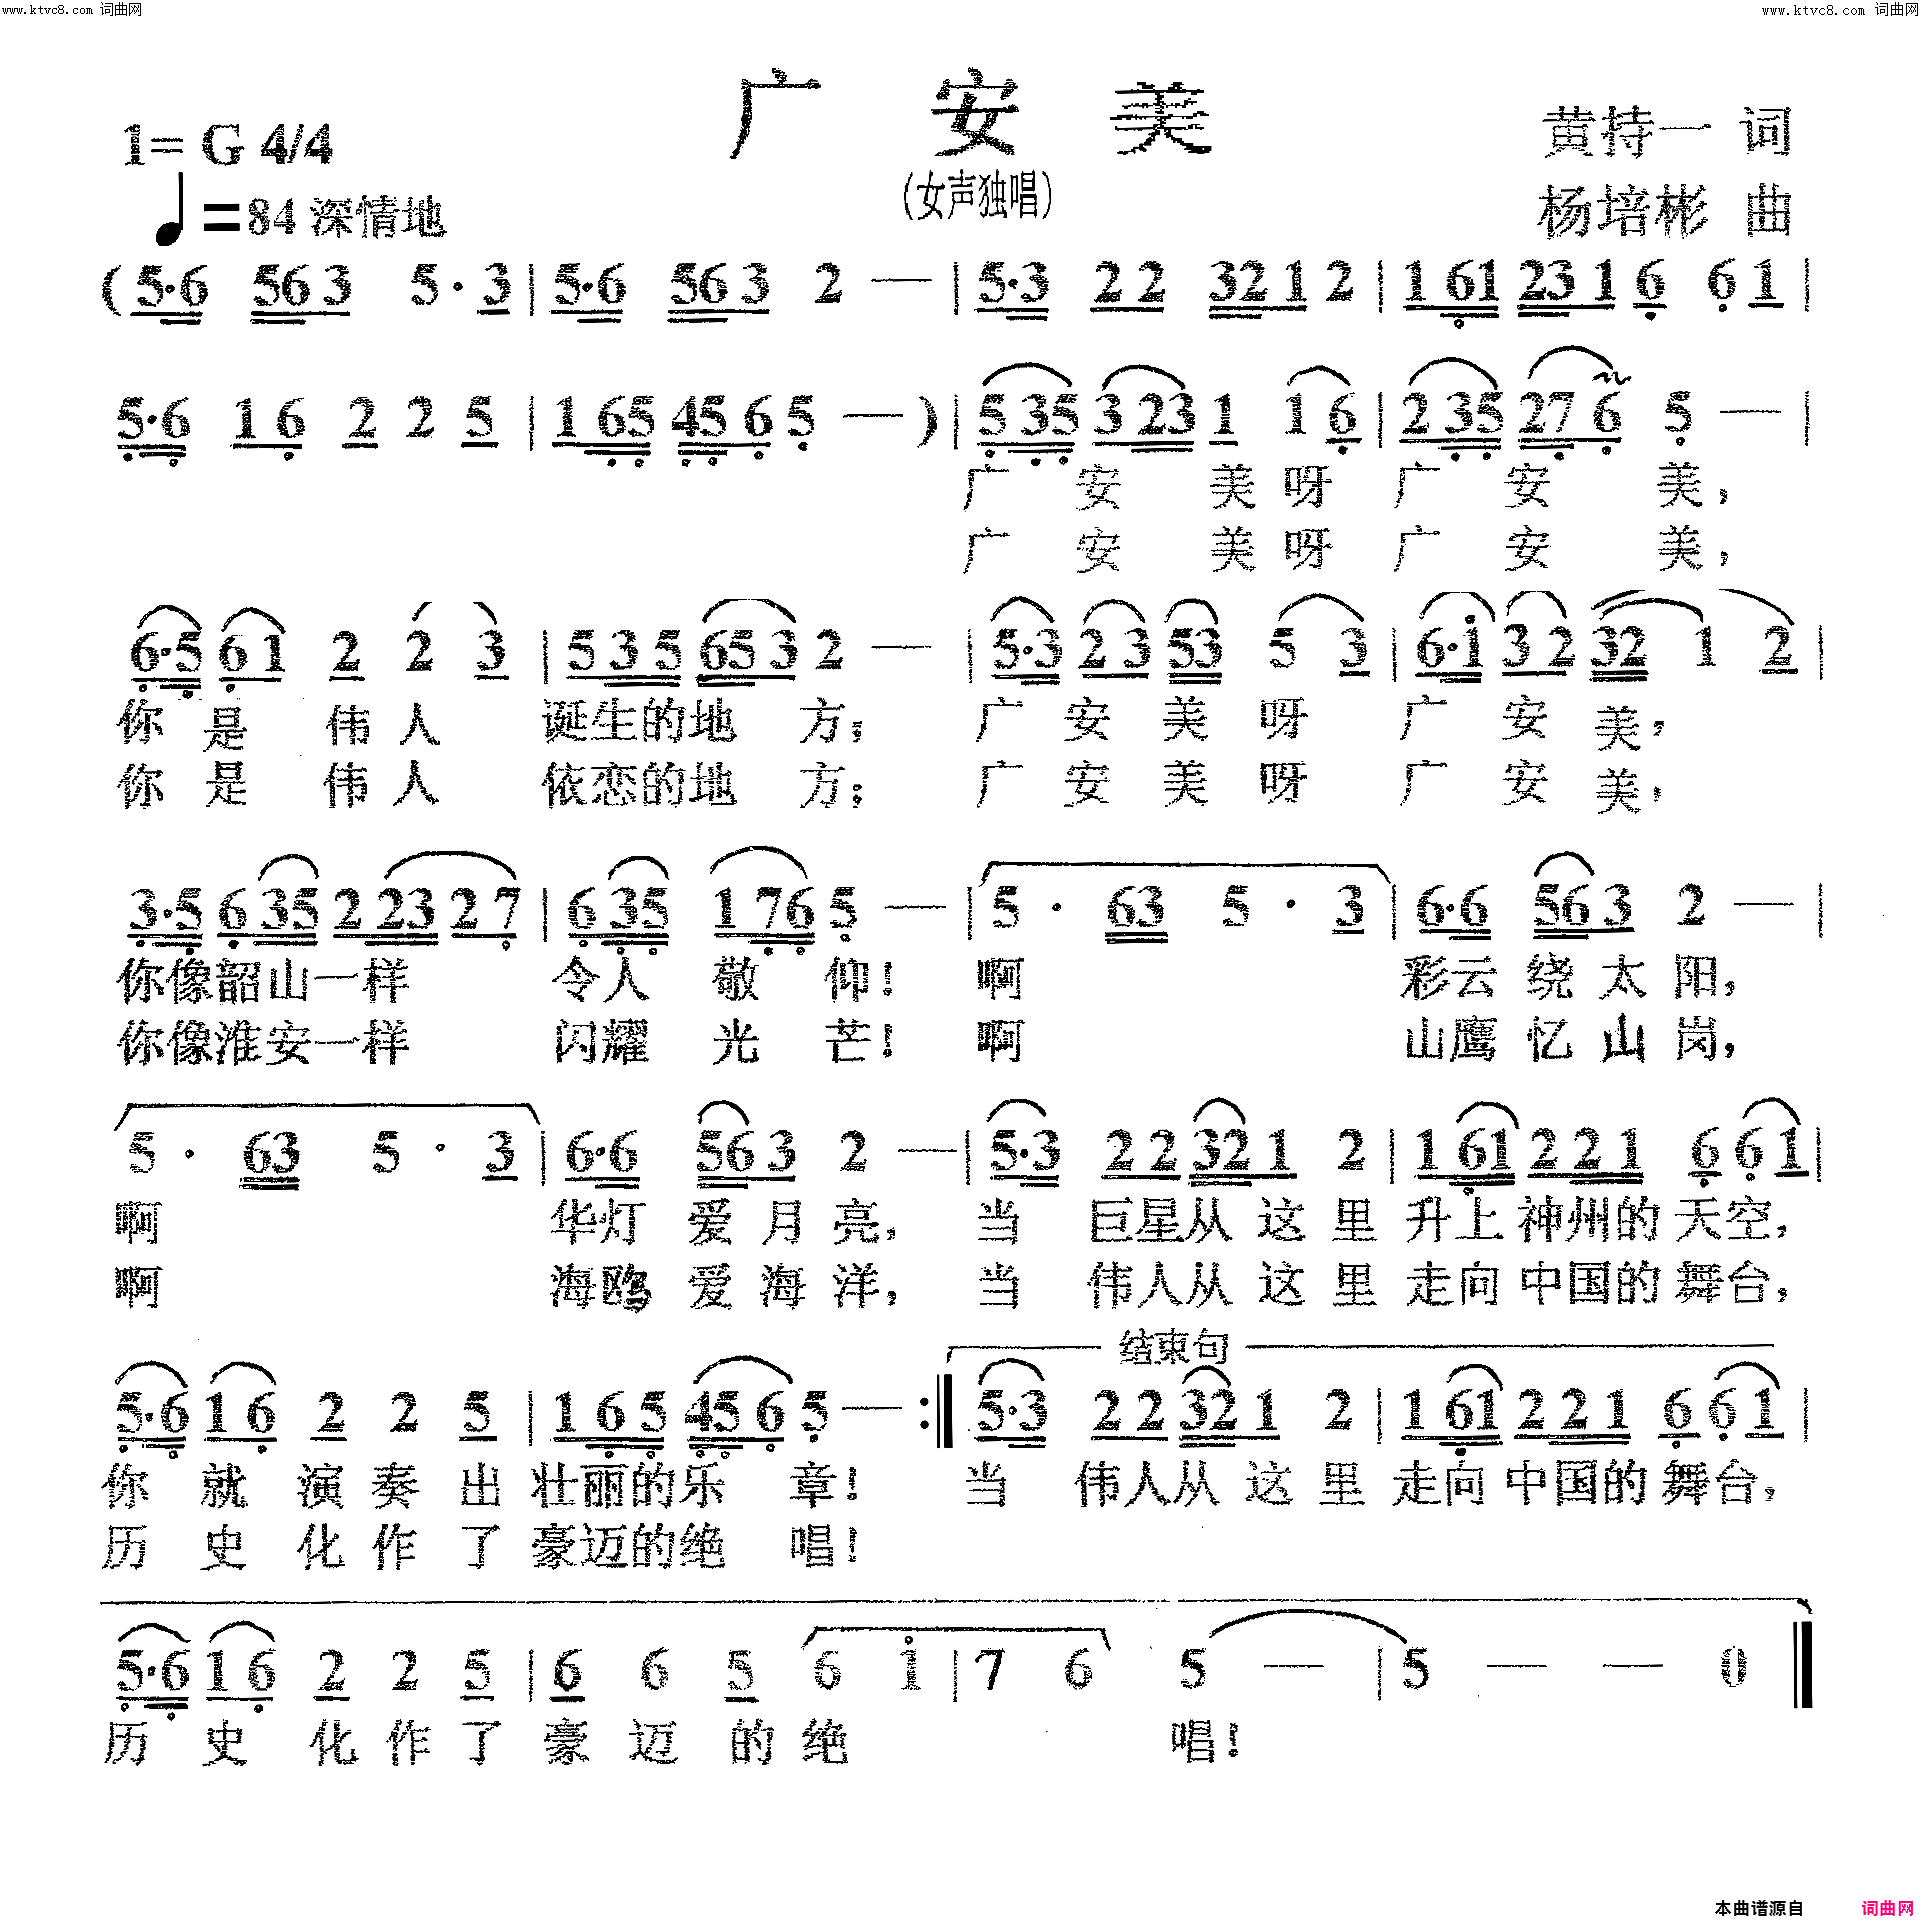 www.ktvc8.com 词曲网 www.ktvc8.com 词曲网
广 安 美
1= G 4/4
黄持一 词
(女声独唱)
♩=84 深情地
杨培彬 曲
(5·6 563 5·3 | 5·6 563 2 — | 5·3 22 321 2 | 161 231 6 61 |
5·6 16 2 2 5 | 165 456 5 — ) | 535 323 1 1 6 | 235 276 5 — |
广 安 美呀 广 安 美,
广 安 美呀 广 安 美,
6·5 61 2 2 3 | 535 653 2 — | 5·3 23 53 5 3 | 6·1 32 32 1 2 |
你是伟人 诞生的地方; 广安美呀 广安美,
你是伟人 依恋的地方; 广安美呀 广安美,
3·5 635 223 27 | 635 176 5 — | 5 · 63 5 · 3 | 6·6 563 2 — |
你像韶山一样 令人敬仰! 啊 彩云绕太阳,
你像淮安一样 闪耀光芒! 啊 山鹰忆山岗,
5 · 63 5 · 3 | 6·6 563 2 — | 5·3 22 321 2 | 161 221 6 61 |
啊 华灯爱月亮, 当巨星从这里升上神州的天空,
啊 海鸥爱海洋, 当伟人从这里走向中国的舞台,
结束句
5·6 16 2 2 5 | 165 456 5 — :| 5·3 22 321 2 | 161 221 6 61 |
你就演奏出壮丽的乐章! 当伟人从这里走向中国的舞台,
历史化作了豪迈的绝唱!
5·6 16 2 2 5 | 6 6 5 6 1 | 7 6 5 — | 5 — — 0
历史化作了豪迈的绝 唱!
本曲谱源自 词曲网